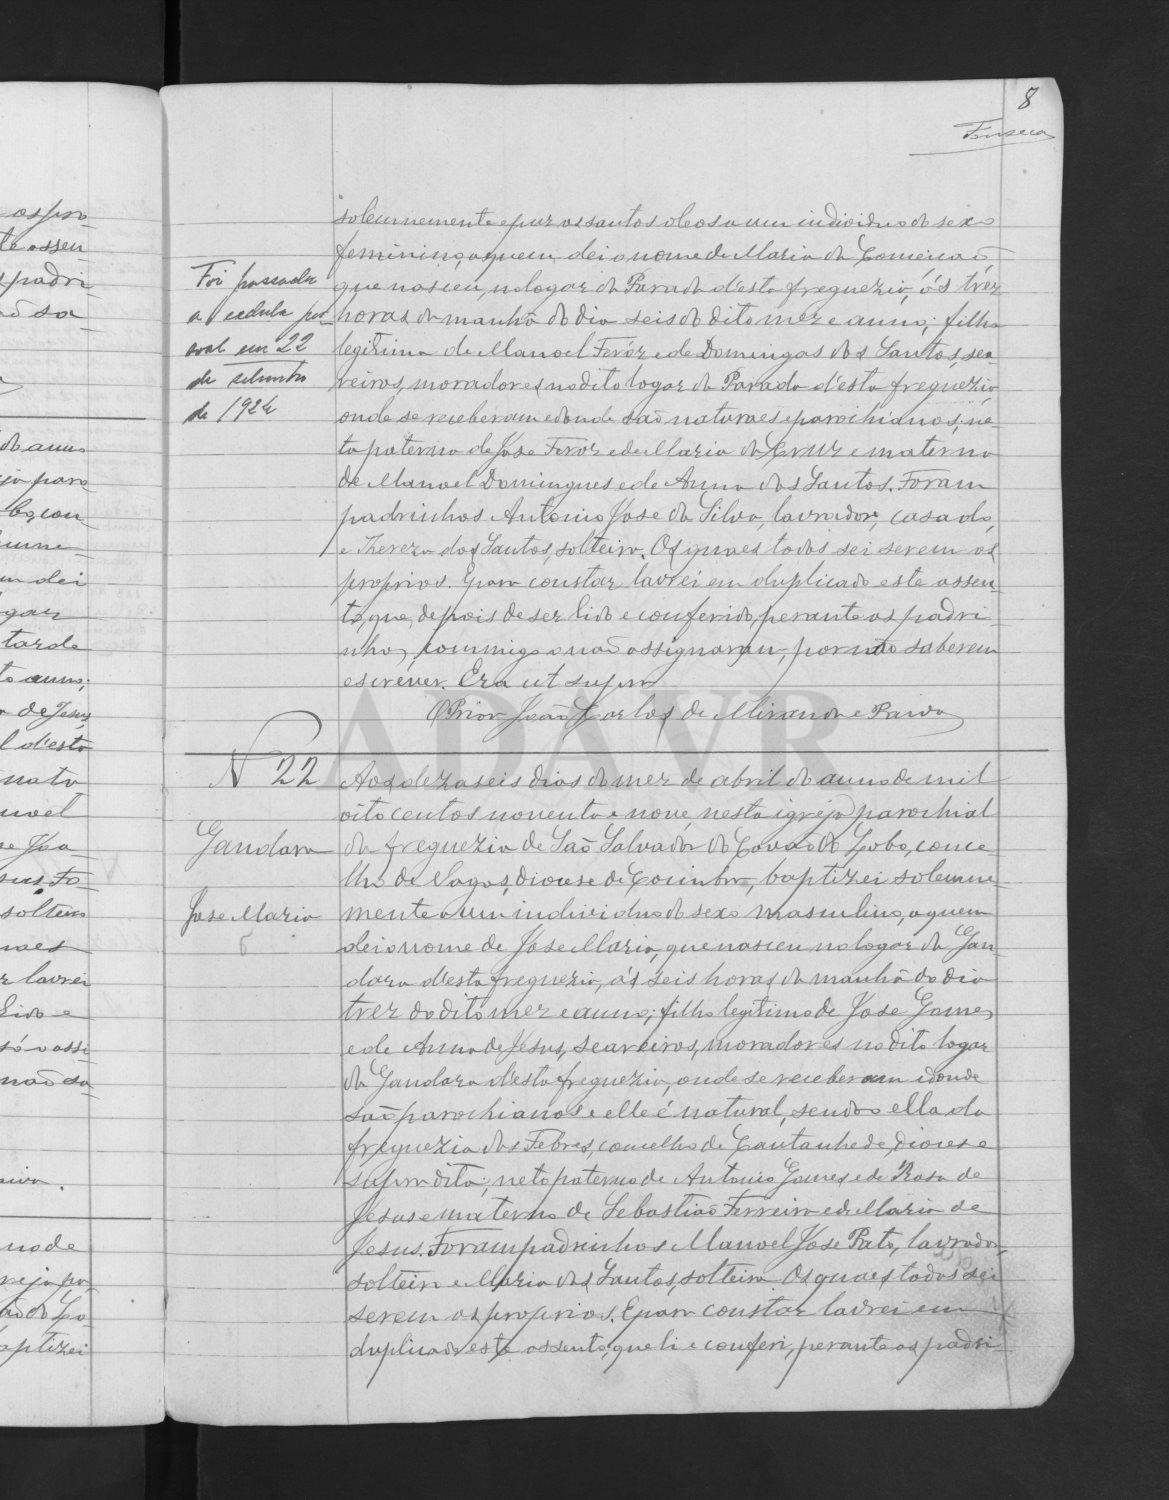 8
Fonseca
solemnemente e puz os santos oleos a um individuo do sexo
feminino, a quem dei o nome de Maria da Conceicaõ
que nasceu, no logar da Parada d'esta freguezia, ás trez
horas da manhã do dia seis do dito mez e anno; filha
legitima de Manoel Feróz e de Domingas dos Santos, sea-
reiros, moradores no dito logar da Parada d'esta freguezia,
onde se receberam e donde saõ naturaes e parochianos; ne-
ta paterna de Jose Feroz e de Maria da Cruz e materna
de Manoel Domingues e de Anna dos Santos. Foram
padrinhos Antonio Jose da Silva, lavrador, casado,
e Thereza dos Santos, solteira. Os quaes todos sei serem os
proprios. E para constar lavrei em duplicado este assen-
to, que, depois de ser lido e conferido, perante os padri-
nhos, commigo o naõ assignaram, por não saberem
escrever. Era ut supra
O Prior João Carlos de Miranda e Paiva
Foi passada
a cedula pes-
soal em 22
de setembro
de 1924
Nº 22
Gandara
Jose Maria
6
Aos dezaseis dias do mez de abril do anno de mil
oito centos noventa e nove, nesta igreja parochial
da freguezia de Saõ Salvador do Covaõ do Lobo, conce-
lho de Vagos, diocese de Coimbra, baptizei solemne-
mente a um individuo do sexo masculino, a quem
dei o nome de Jose Maria, que nasceu no logar da Gan-
dara d'esta freguezia, ás seis horas da manhã do dia
trez do dito mez e anno; filho legitimo de Jose Gomes
e de Anna de Jesus, seareiros, moradores no dito logar
da Gandara d'esta freguezia, onde se receberam e donde
saõ parochianos e elle é natural, sendo ella da
freguezia das Febres, concelho de Cantanhede, diocese
supra dita; neto paterno de Antonio Gomes e de Rosa de
Jesus e materno de Sebastiaõ Ferreira e de Maria de
Jesus. Foram padrinhos Manoel Jose Rato, lavrador,
solteiro e Maria dos Santos, solteira Os quaes todos sei
serem os proprios. E para constar lavrei em
duplicado este assento, que li e conferi, perante os padri-
ADAVR